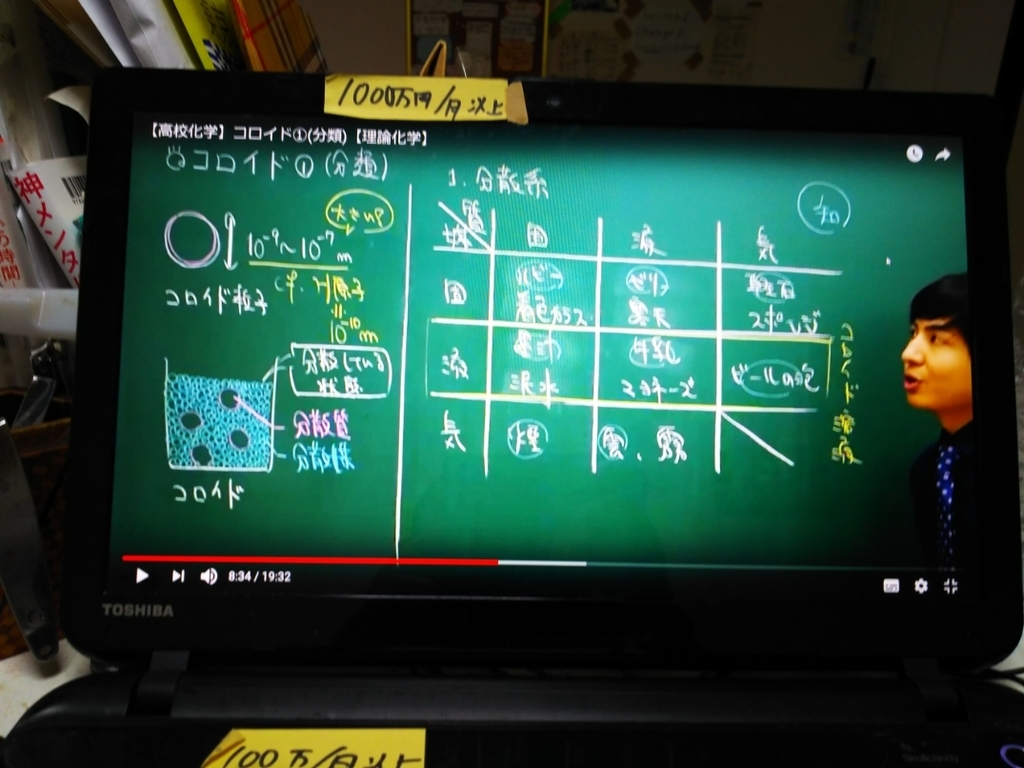 1000万円/月以上
【高校化学】コロイド①(分類)【理論化学】
コロイド①(分類)
大きい順
10⁻⁹～10⁻⁷m
コロイド粒子
原子
10⁻¹⁰m
分散している
状態
分散質
分散媒
コロイド
1. 分散系
知
質
媒
固 液 気
固 ルビー ゼリー 軽石
着色ガラス 寒天 スポンジ
液 牛乳 ビールの泡
泥水 マヨネーズ
気 煙 雲、霧
コロイド溶液
8:34 / 19:32
TOSHIBA
神メンタル
時間
100万/月以上